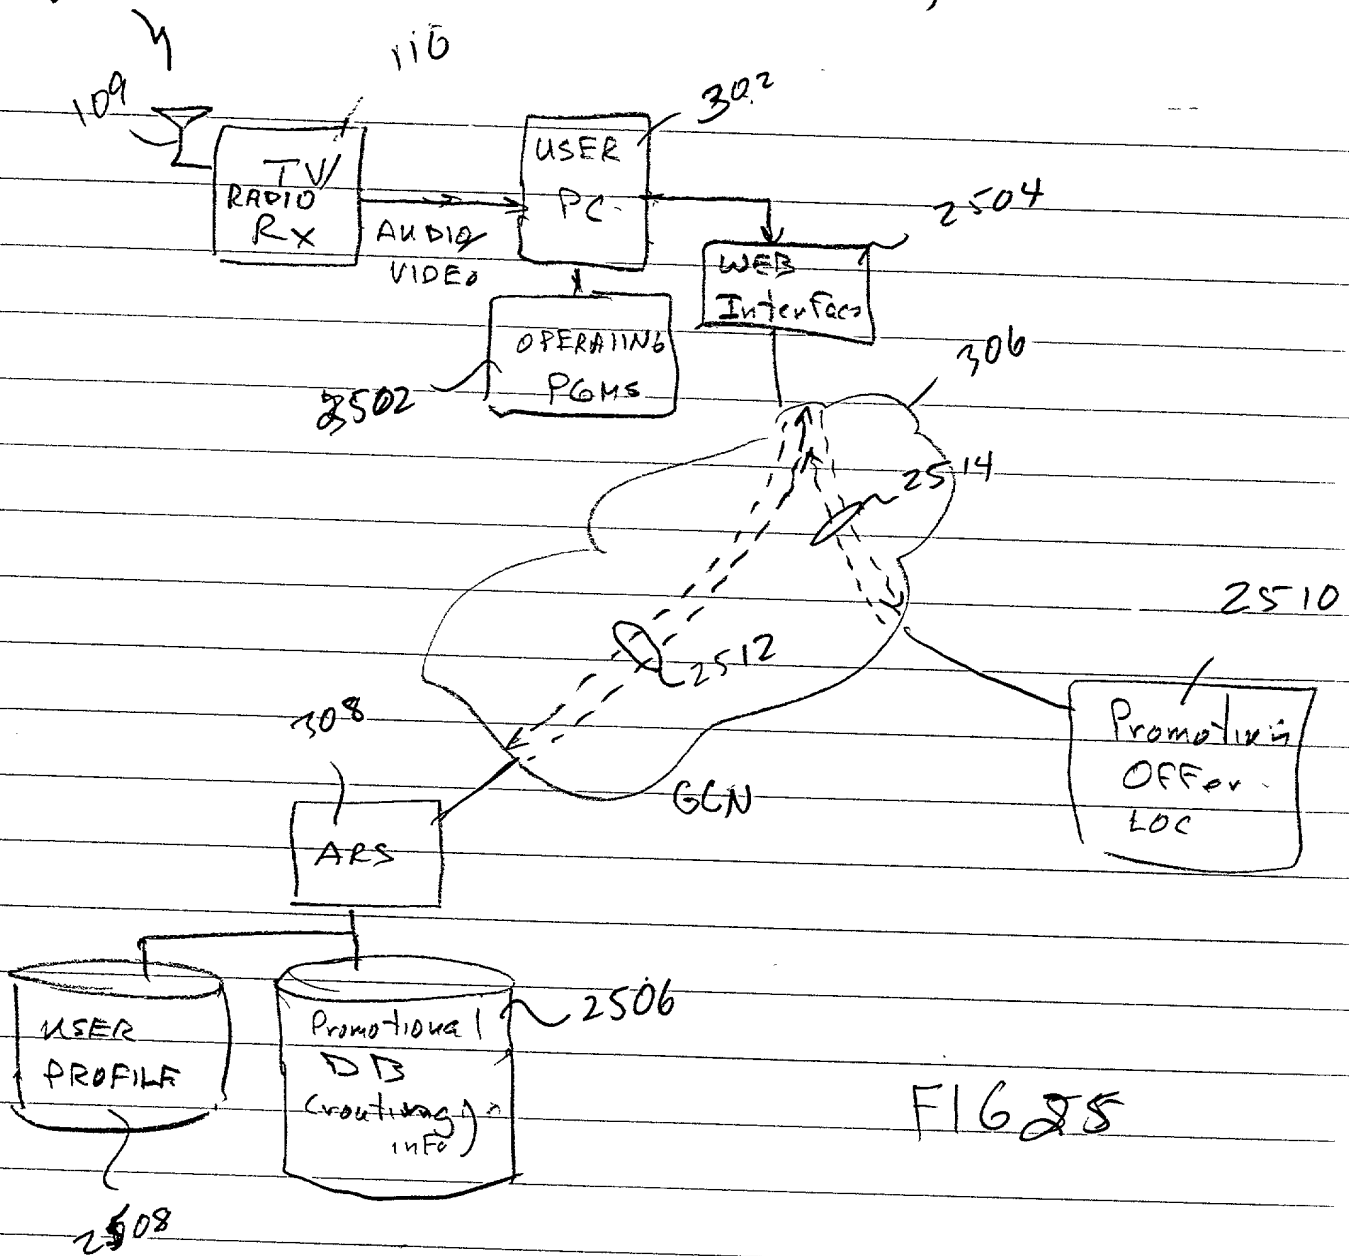 110
109
302
TV/
RADIO
Rx
AUDIO/
VIDEO
USER
PC
2504
WEB
Interface
OPERATING
PGMS
2502
306
2514
2512
2510
Promotion
Offer
LOC
308
ARS
GCN
USER
PROFILE
2508
Promotional
DB
(routing
info)
2506
FIG 25